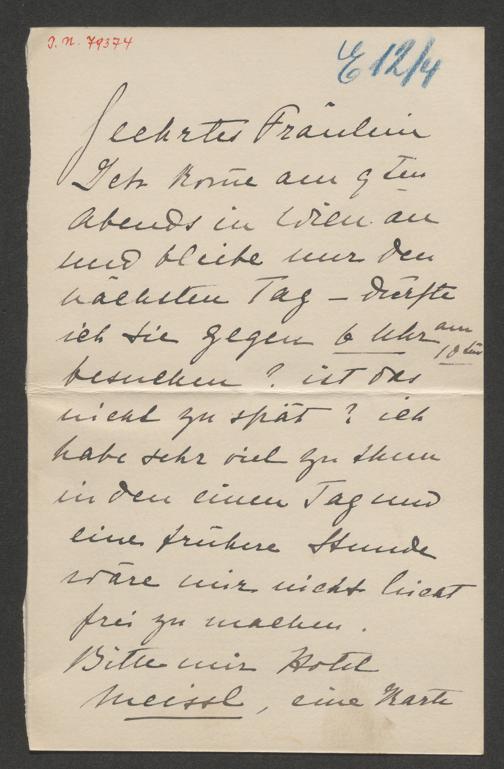 J. N. 79374
E 12/4
Geehrtes Fräulein
Ich kom̄e am 9ten
Abends in Wien an
und bleibe nur den
nächsten Tag – dürfte
ich Sie gegen 6 Uhr am 10ten
besuchen? ist das
nicht zu spät? ich
habe sehr viel zu thun
in den einen Tag und
eine frühere Stunde
wäre mir nicht leicht
frei zu machen.
Bitte mir Hotel
Meissl, eine Karte